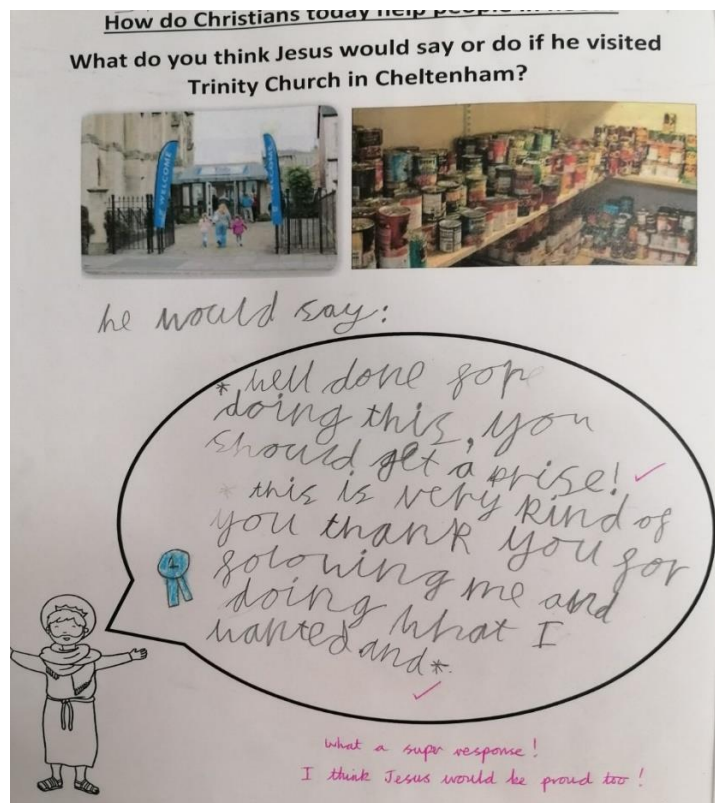 How do Christians today help people in
What do you think Jesus would say or do if he visited
Trinity Church in Cheltenham?
WELCOME
WELCOME
he would say:
* well done
doing this, you
should get a prise!
* this is very kind of
you thank you for
folowing me and
doing what I
wanted and *.
1
What a super response!
I think Jesus would be proud too!